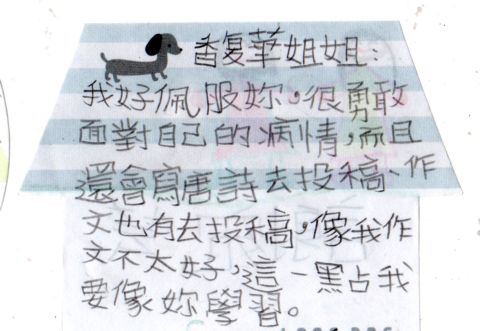 馥華姐姐：
我好佩服妳，很勇敢
面對自己的病情，而且
還會寫唐詩去投稿、作
文也有去投稿，像我作
文不太好，這一點占我
要像妳學習。